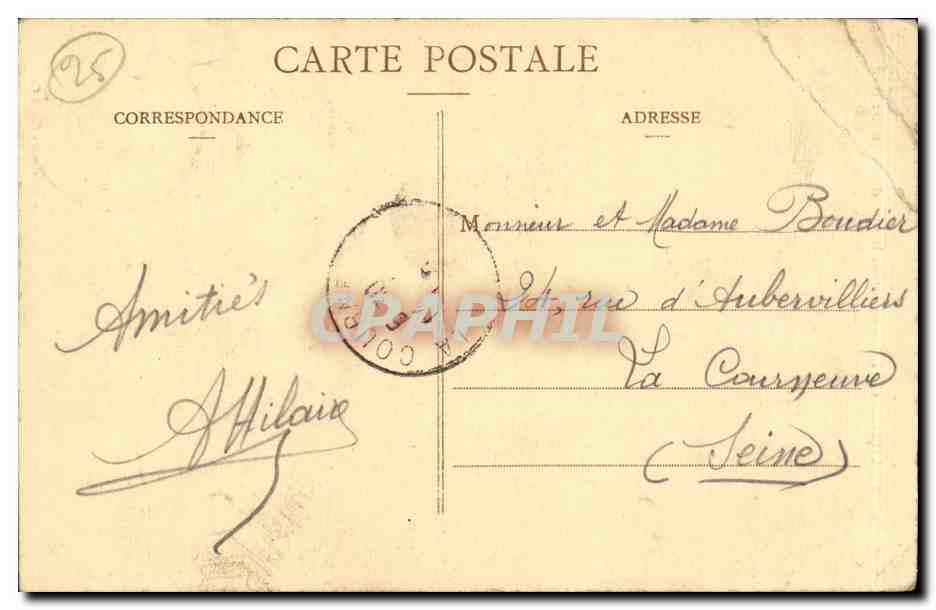 25
CARTE POSTALE
CORRESPONDANCE
ADRESSE
Monsieur et Madame Boudier
24, rue d'Aubervilliers
La Courneuve
(Seine)
Amitiés
A Hilaire
LA COURNE
CPAPHIL